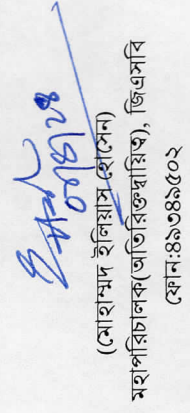 (মোহাম্মদ ইলিয়াস হোসেন)
মহাপরিচালক(অতিরিক্তদায়িত্ব), জিএসবি
ফোন:৪৯৩৪৯৫০২